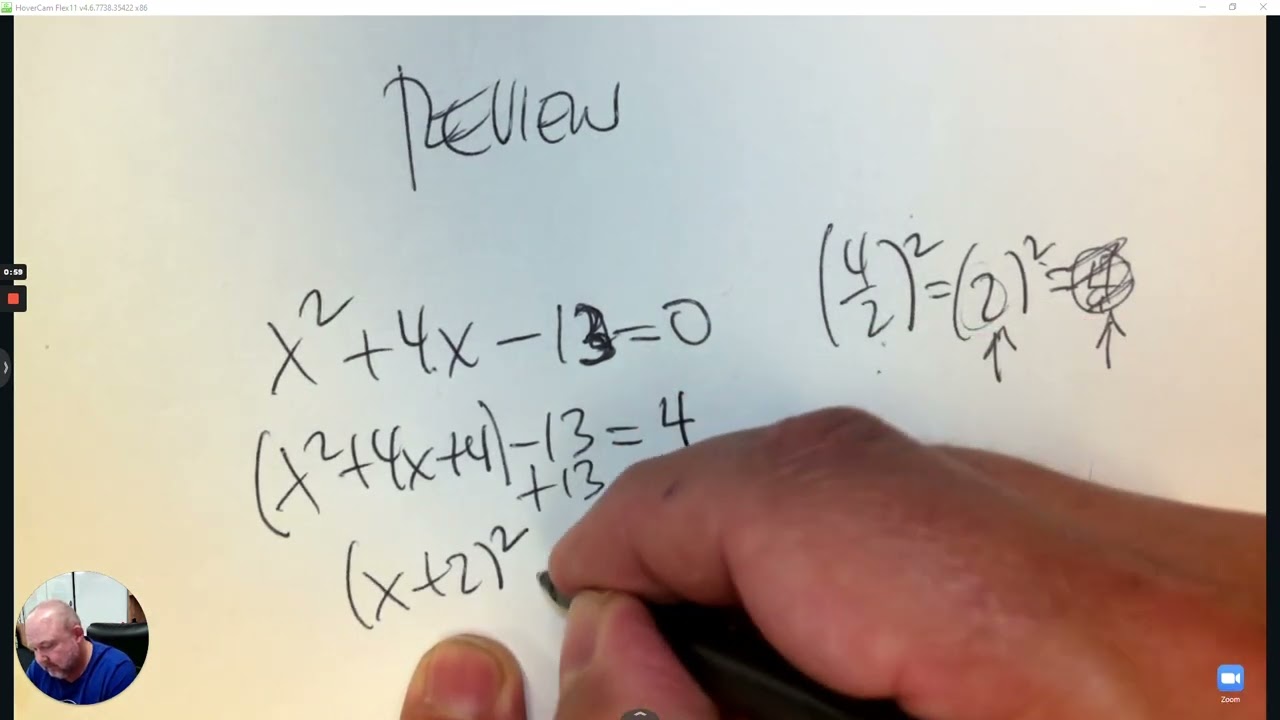 HoverCam Flex11 v4.6.7738.35422 x86
REVIEW
0:59
(4/2)² = (2)² = 4
x² + 4x - 13 = 0
(x² + 4x + 4) - 13 = 4
+13
(x+2)²
Zoom